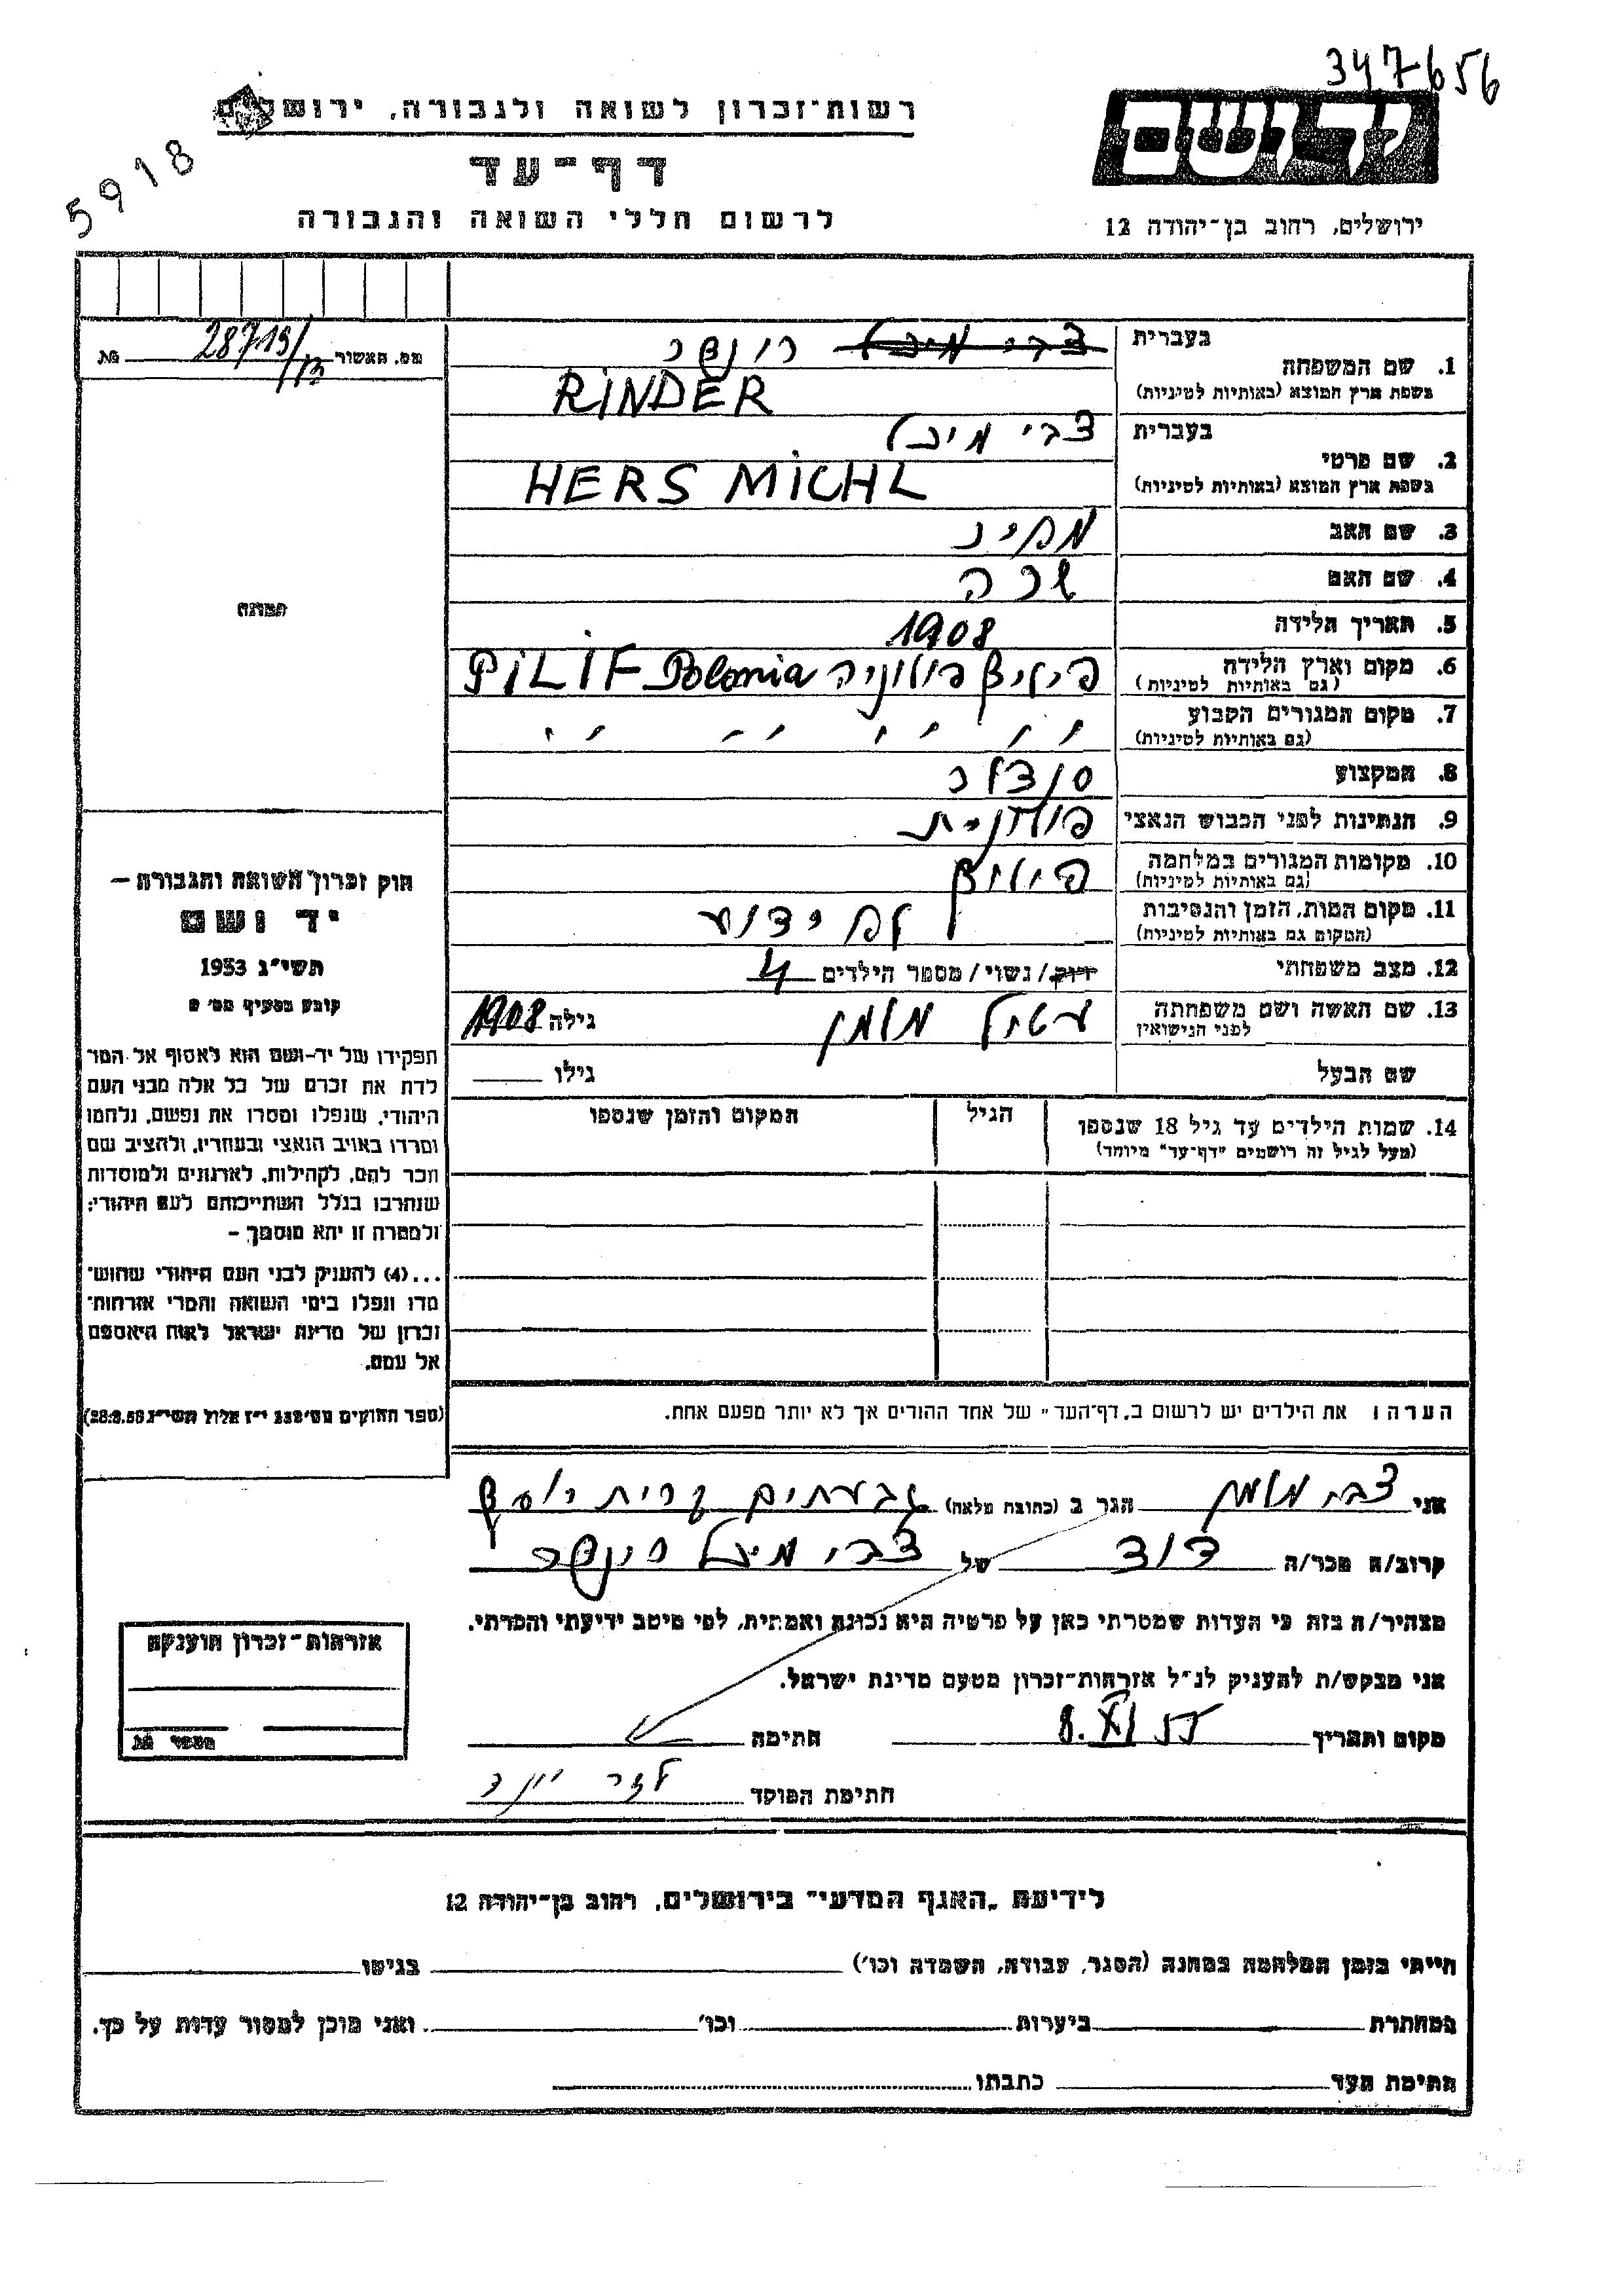 347656
רשות־זכרון לשואה ולגבורה, ירושלים
יד ושם
5918
דף־עד
לרשום חללי השואה והגבורה
ירושלים, רחוב בן־יהודה 12
מס. האשור 28713/
בעברית
צבי מיכל רינדר
1. שם המשפחה
בשפת ארץ המוצא (באותיות לטיניות)
RINDER
בעברית
צבי מיכל
2. שם פרטי
בשפת ארץ המוצא (באותיות לטיניות)
HERS MICHL
3. שם האב
4. שם האם שרה
5. תאריך הלידה 1908
6. מקום וארץ הלידה
(גם באותיות לטיניות)
פיליף פולוניה Polonia PILIF
7. מקום המגורים הקבוע
(גם באותיות לטיניות)
8. המקצוע סנדלר
9. הנתינות לפני הכבוש הנאצי פולנית
10. מקומות המגורים במלחמה
(גם באותיות לטיניות)
פיליף
11. מקום המות, הזמן והנסיבות
(המקום גם באותיות לטיניות)
לא ידוע
12. מצב משפחתי רווק/נשוי/מספר הילדים 4
13. שם האשה ושם משפחתה
לפני הנישואין
גילה 1908
שם הבעל גילו
14. שמות הילדים עד גיל 18 שנספו
(מעל לגיל זה רושמים "דף־עד" מיוחד)
הגיל
המקום והזמן שנספו
הערה: את הילדים יש לרשום ב„דף־העד" של אחד ההורים אך לא יותר מפעם אחת.
תמונה
חוק זכרון השואה והגבורה –
יד ושם
תשי"ג 1953
קובע בסעיף מס' 2
תפקידו של יד־ושם הוא לאסוף אל המו
לדת את זכרם של כל אלה מבני העם
היהודי, שנפלו ומסרו את נפשם, נלחמו
ומרדו באויב הנאצי ובעוזריו, ולהציב שם
וזכר להם, לקהילות, לארגונים ולמוסדות
שנחרבו בגלל השתייכותם לעם היהודי;
ולמטרה זו יהא מוסמך –
...(4) להעניק לבני העם היהודי שהוש־
מדו ונפלו בימי השואה והמרי אזרחות־
זכרון של מדינת ישראל לאות היאספם
אל עמם.
(ספר החוקים מס' 132 י"ז אלול תשי"ג 28.8.53)
אני צבי הגר ב (כתובת מלאה) גבעתים קרית יוסף
קרוב/ה מכר/ה דוד של צבי מיכל רינדר
מצהיר/ה בזה כי העדות שמסרתי כאן על פרטיה היא נכונה ואמתית, לפי מיטב ידיעתי והכרתי.
אני מבקש/ת להעניק לנ"ל אזרחות־זכרון מטעם מדינת ישראל.
מקום ותאריך 8.XI 55 חתימה
חתימת הפוקד
אזרחות־זכרון הוענקה
מספר
לידיעת „האגף המדעי" בירושלים, רחוב בן־יהודה 12
הייתי בזמן המלחמה במחנה (הסגר, עבודה, השמדה וכו') בגיטו
במחתרת ביערות וכו' ואני מוכן למסור עדות על כך.
חתימת העד כתבתו